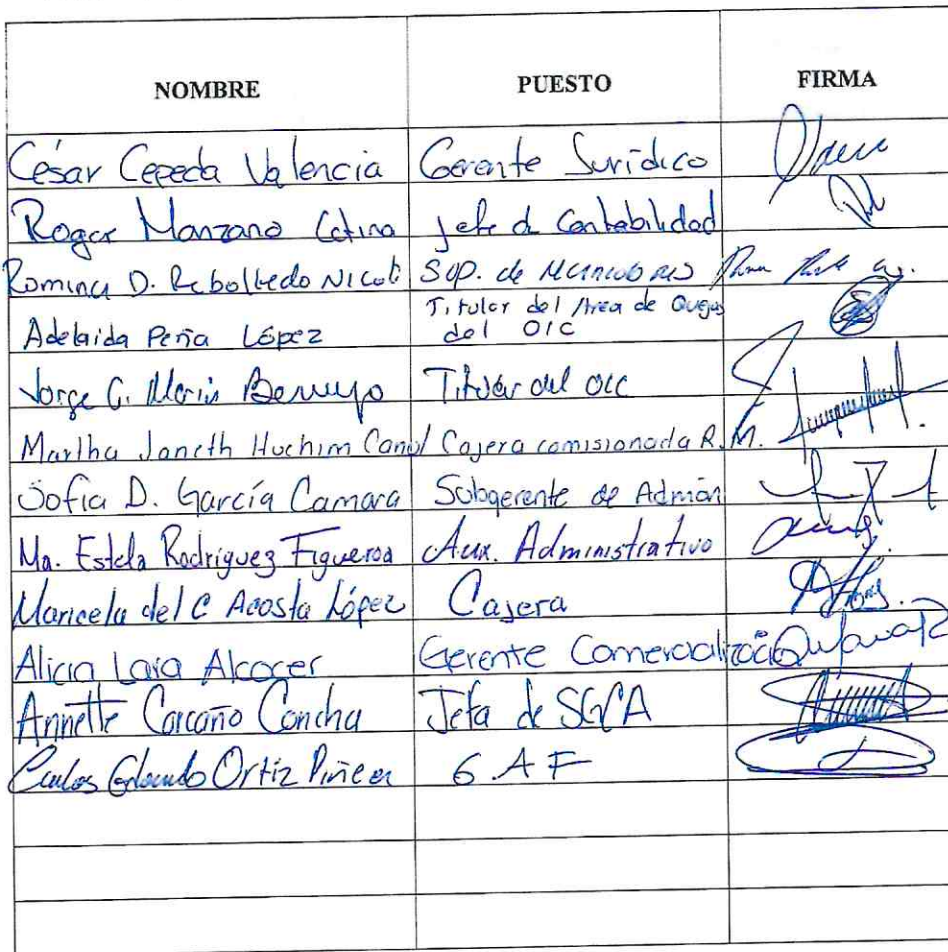 NOMBRE PUESTO FIRMA
César Cepeda Valencia Gerente Jurídico
Roger Manzano Jefe de Contabilidad
Romina D. Rebolledo Sup. de Maniobras
Adelaida Peña López Titular del Area de Quejas
del OIC
Jorge C. Marín Titular del OIC
Martha Janeth Huchim Canul Cajera comisionada R.M.
Sofía D. García Camara Subgerente de Admón
Ma. Estela Rodríguez Figueroa Aux. Administrativo
Maricela del C Acosta López Cajera
Alicia Lara Alcocer Gerente Comercialización
Annette Carcaño Concha Jefa de SGCA
Carlos Ortiz G A F